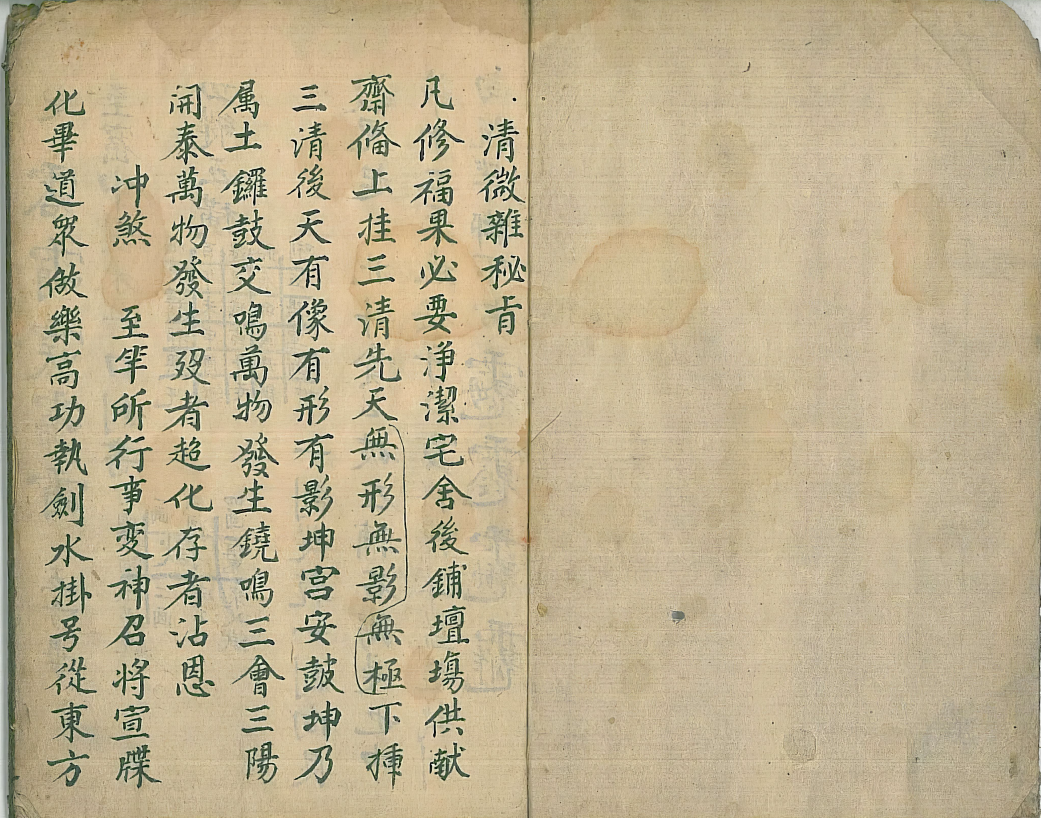 清微雜秘旨
凡修福果必要净潔宅舍後鋪壇塲供献
齋俻上挂三清先天無形無影無極下揷
三清後天有像有形有影坤宫安皷坤乃
属土鑼鼓交鳴萬物發生鐃鳴三會三陽
開泰萬物發生歿者超化存者沾恩
冲煞 至 所行事变神召将宣牒
化畢道眾做樂高功執劍水掛号從東方